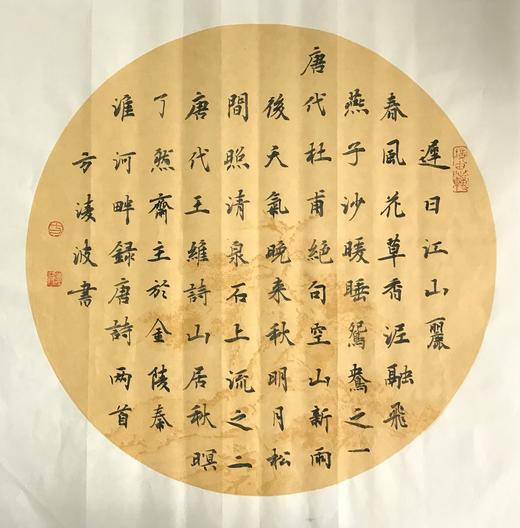 遲日江山麗
春風花草香泥融飛
燕子沙暖睡鴛鴦之一
唐代杜甫絕句空山新雨
後天氣晚來秋明月松
間照清泉石上流之二
唐代王維詩山居秋暝
了然齋主於金陵秦
淮河畔録唐詩两首
方淩波書